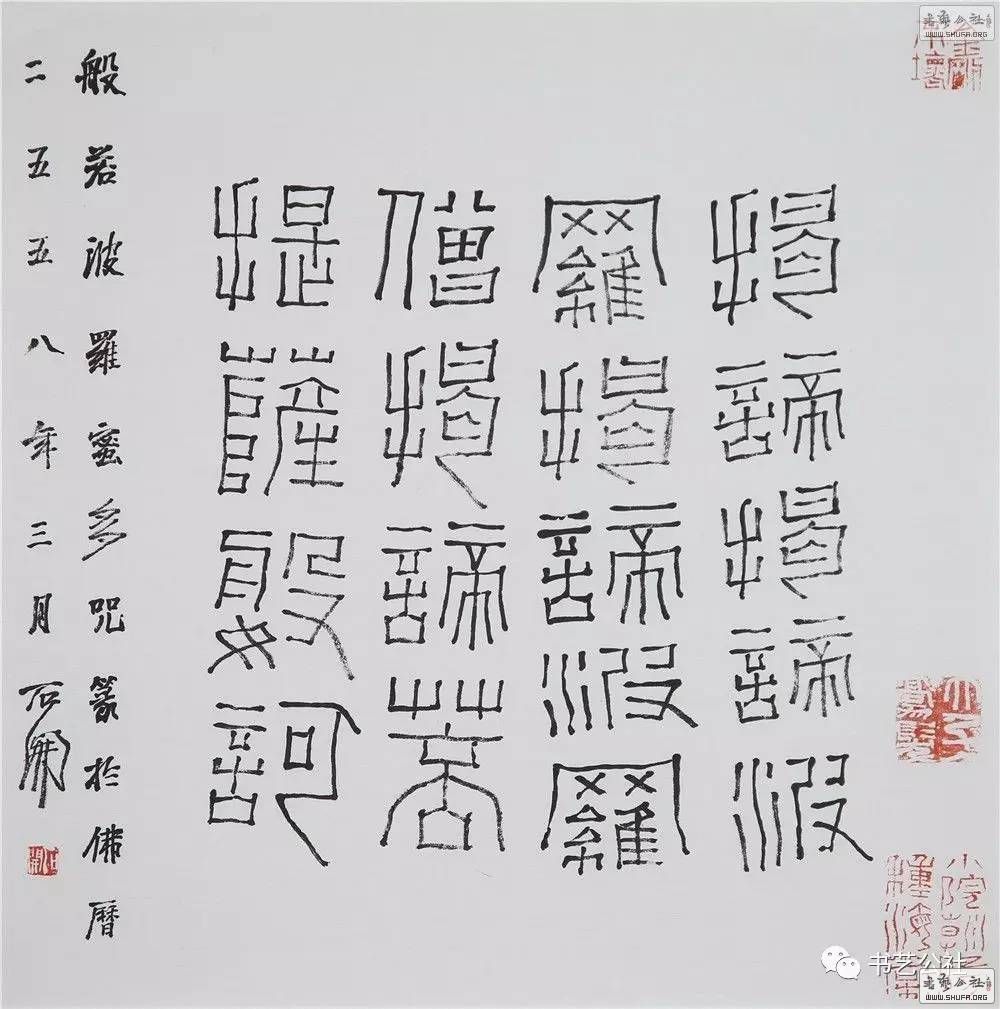 揭諦揭諦波
羅揭諦波羅
僧揭諦菩
提薩媻訶
般若波羅蜜多咒篆於佛曆
二五五八年三月石開
石開
金剛不壞
书艺公社
WWW.SHUFA.ORG
书艺公社
书艺公社
WWW.SHUFA.ORG